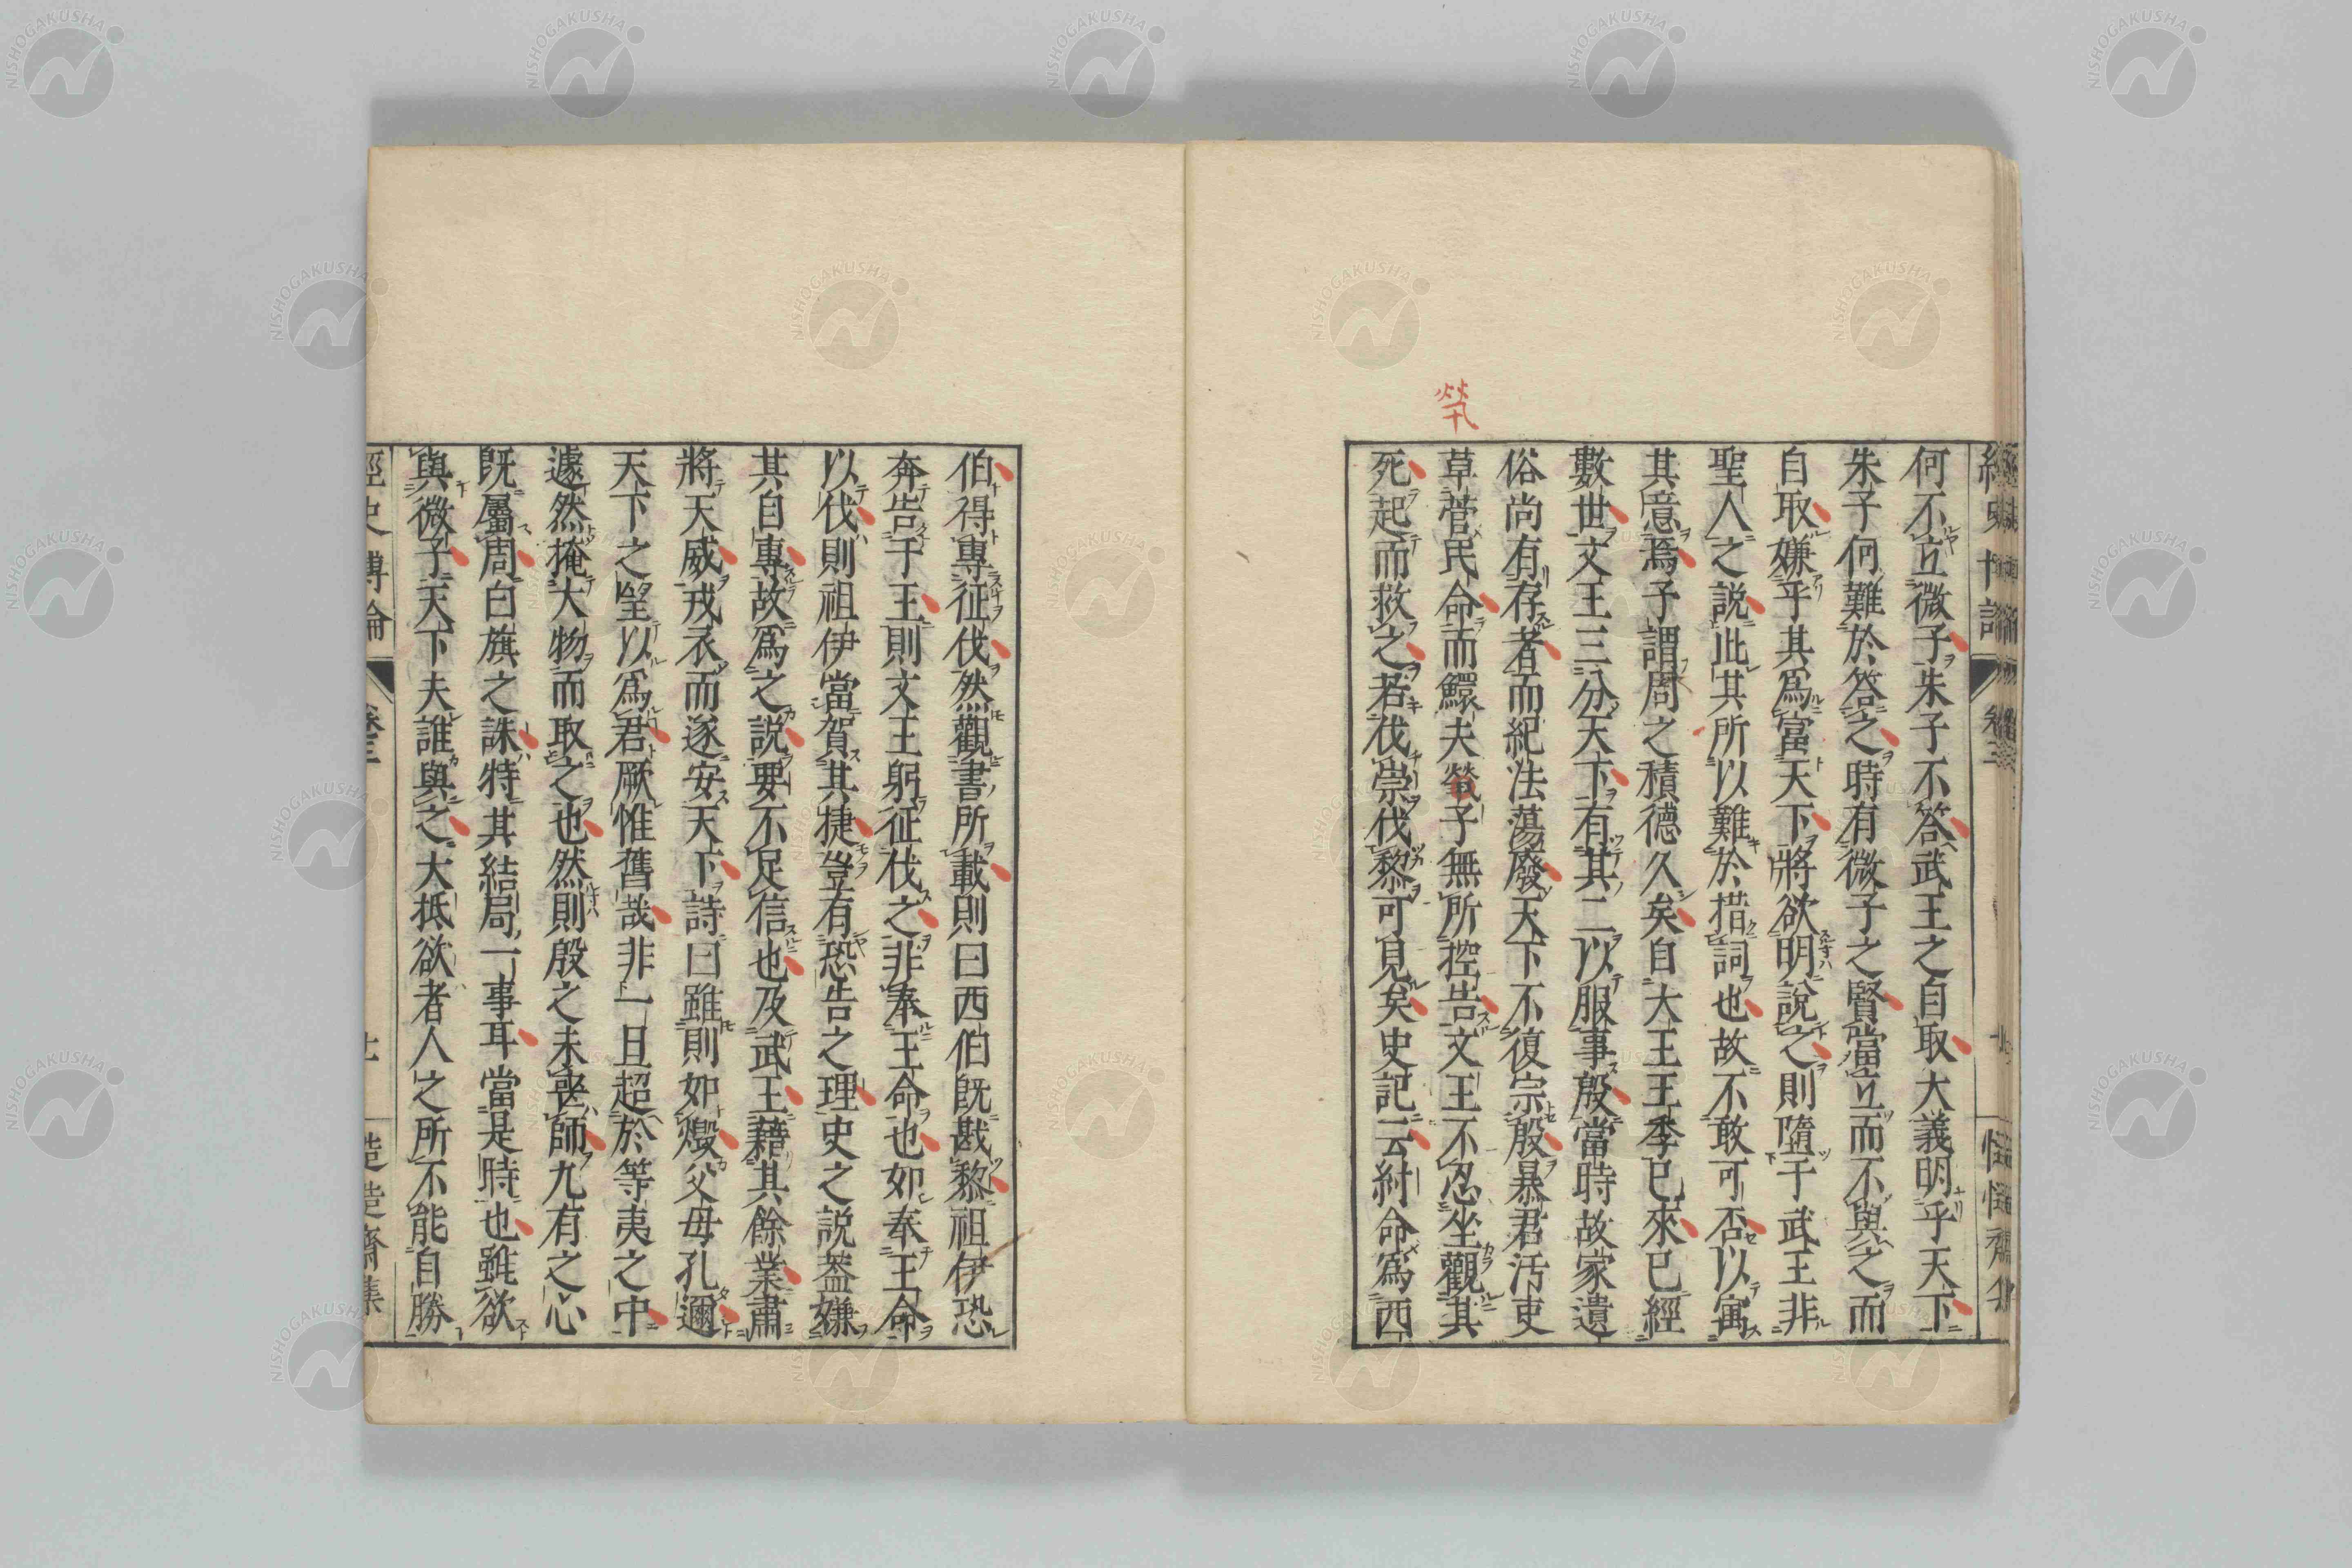 何不立微子朱子不答武王之自取大義明乎天下
朱子何難於答之時有微子之賢當立而不與之而
自取嫌乎其爲富天下將欲明說之則墮于武王非
聖人之說此其所以難於措詞也故不敢可否以寓
其意焉子謂周之積德久矣自大王王季已來已經
數世文王三分天下有其二以服事殷當時故家遺
俗尚有存者而紀法蕩廢天下不復宗殷暴君汚吏
草菅民命而鰥夫煢子無所控告文王不忍坐觀其
死起而救之若伐崇伐黎可見矣史記云紂命爲西
伯得專征伐然觀書所載則曰西伯旣戡黎祖伊恐
奔告于王則文王躬征伐之非奉王命也如奉王命
以伐則祖伊當賀其捷豈有恐告之理史之説蓋嫌
其自專故爲之説要不足信也及武王藉其餘業肅
將天威戎衣而遂安天下詩曰雖則如燬父母孔邇
天下之望以爲君厥惟舊哉非一旦超於等夷之中
遽然掩大物而取之也然則殷之未喪師九有之心
旣屬周白旗之誅特其結局一事耳當是時也雖欲
與微子天下夫誰與之大抵欲者人之所不能自勝
經史博論
卷三
NISHOGAKUSHA